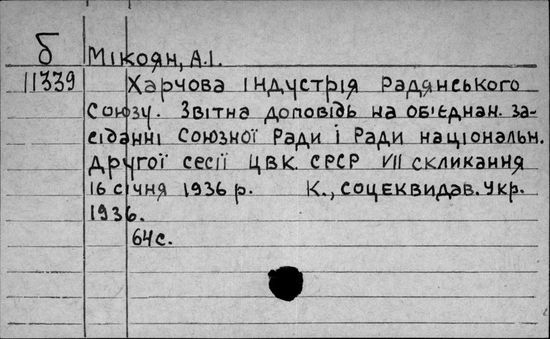 б Мікоян, А.І.
11339 Харчова індустрія Радянського
Союзу. Звітна доповідь на об'єднан. за-
сіданні Союзної Ради і Ради національн.
другої сесії ЦВК СРСР VII скликання
16 січня 1936 р. К., Соцеквидав. Укр.
1936.
64 с.